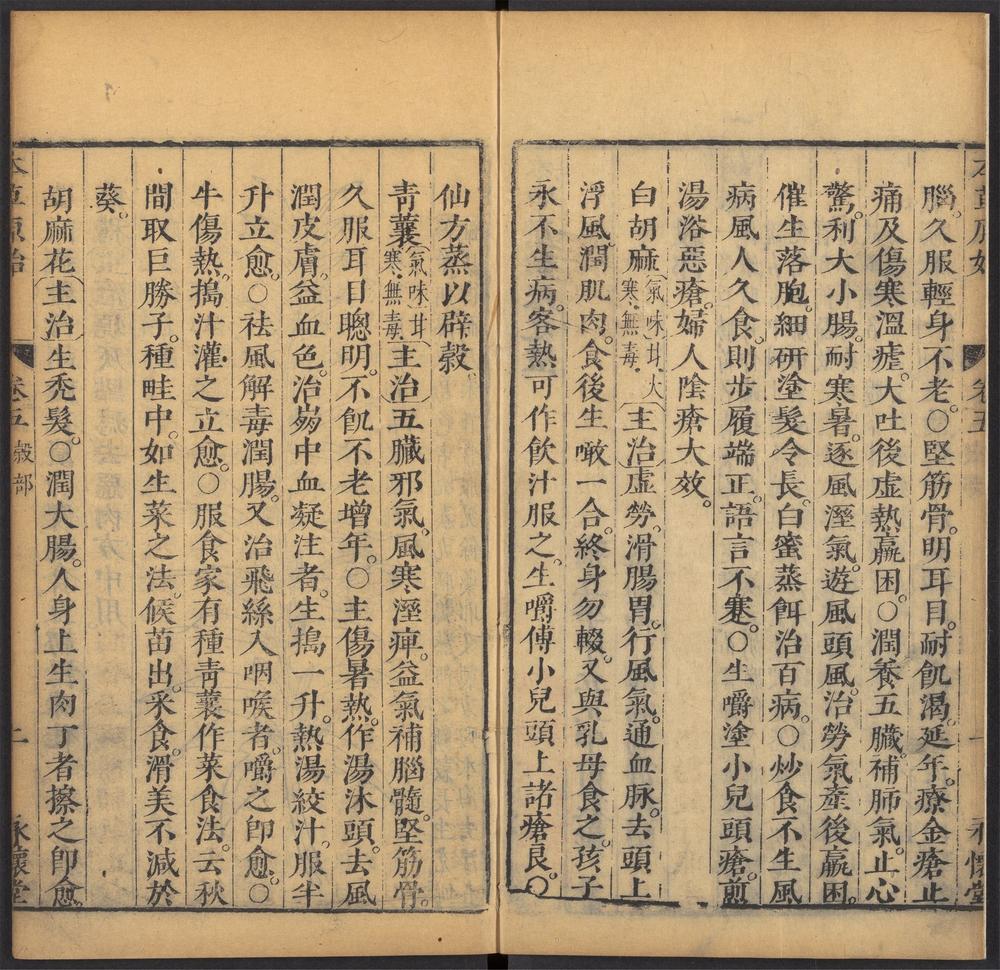 本草原始 卷五 一 永懷堂
腦。久服輕身不老。○堅筋骨。明耳目。耐飢渴。延年。療金瘡止
痛。及傷寒溫瘧。大吐後虛熱羸困。○潤養五臟。補肺氣。止心
驚。利大小腸。耐寒暑。逐風溼氣。遊風頭風。治勞氣產後羸困。
催生落胞。細研塗髮令長。白蜜蒸餌治百病。○炒食不生風
病。風人久食。則步履端正。語言不蹇。○生嚼塗小兒頭瘡。煎
湯浴惡瘡。婦人陰瘡大效。
白胡麻氣味甘。大寒。無毒。主治虛勞。滑腸胃。行風氣。通血脉。去頭上
浮風。潤肌肉。食後生噉一合。終身勿輟。又與乳母食之。孩子
永不生病。客熱可作飲汁服之。生嚼傅小兒頭上諸瘡良。○
仙方蒸以辟穀
青蘘氣味甘寒。無毒主治五臟邪氣。風寒溼痺。益氣補腦髓。堅筋骨。
久服耳目聰明。不飢不老增年。○主傷暑熱。作湯沐頭。去風
潤皮膚。益血色。治崩中血凝注者。生搗一升。熱湯絞汁。服半
升立愈。○祛風解毒潤腸。又治飛絲入咽喉者。嚼之卽愈。○
牛傷熱。搗汁灌之立愈。○服食家有種青蘘作菜食法。云秋
間取巨勝子。種畦中。如生菜之法。候苗出。采食。滑美不減於
葵。
胡麻花主治生禿髮。○潤大腸。人身上生肉丁者擦之卽愈。
本草原始 卷五 穀部 二 永懷堂